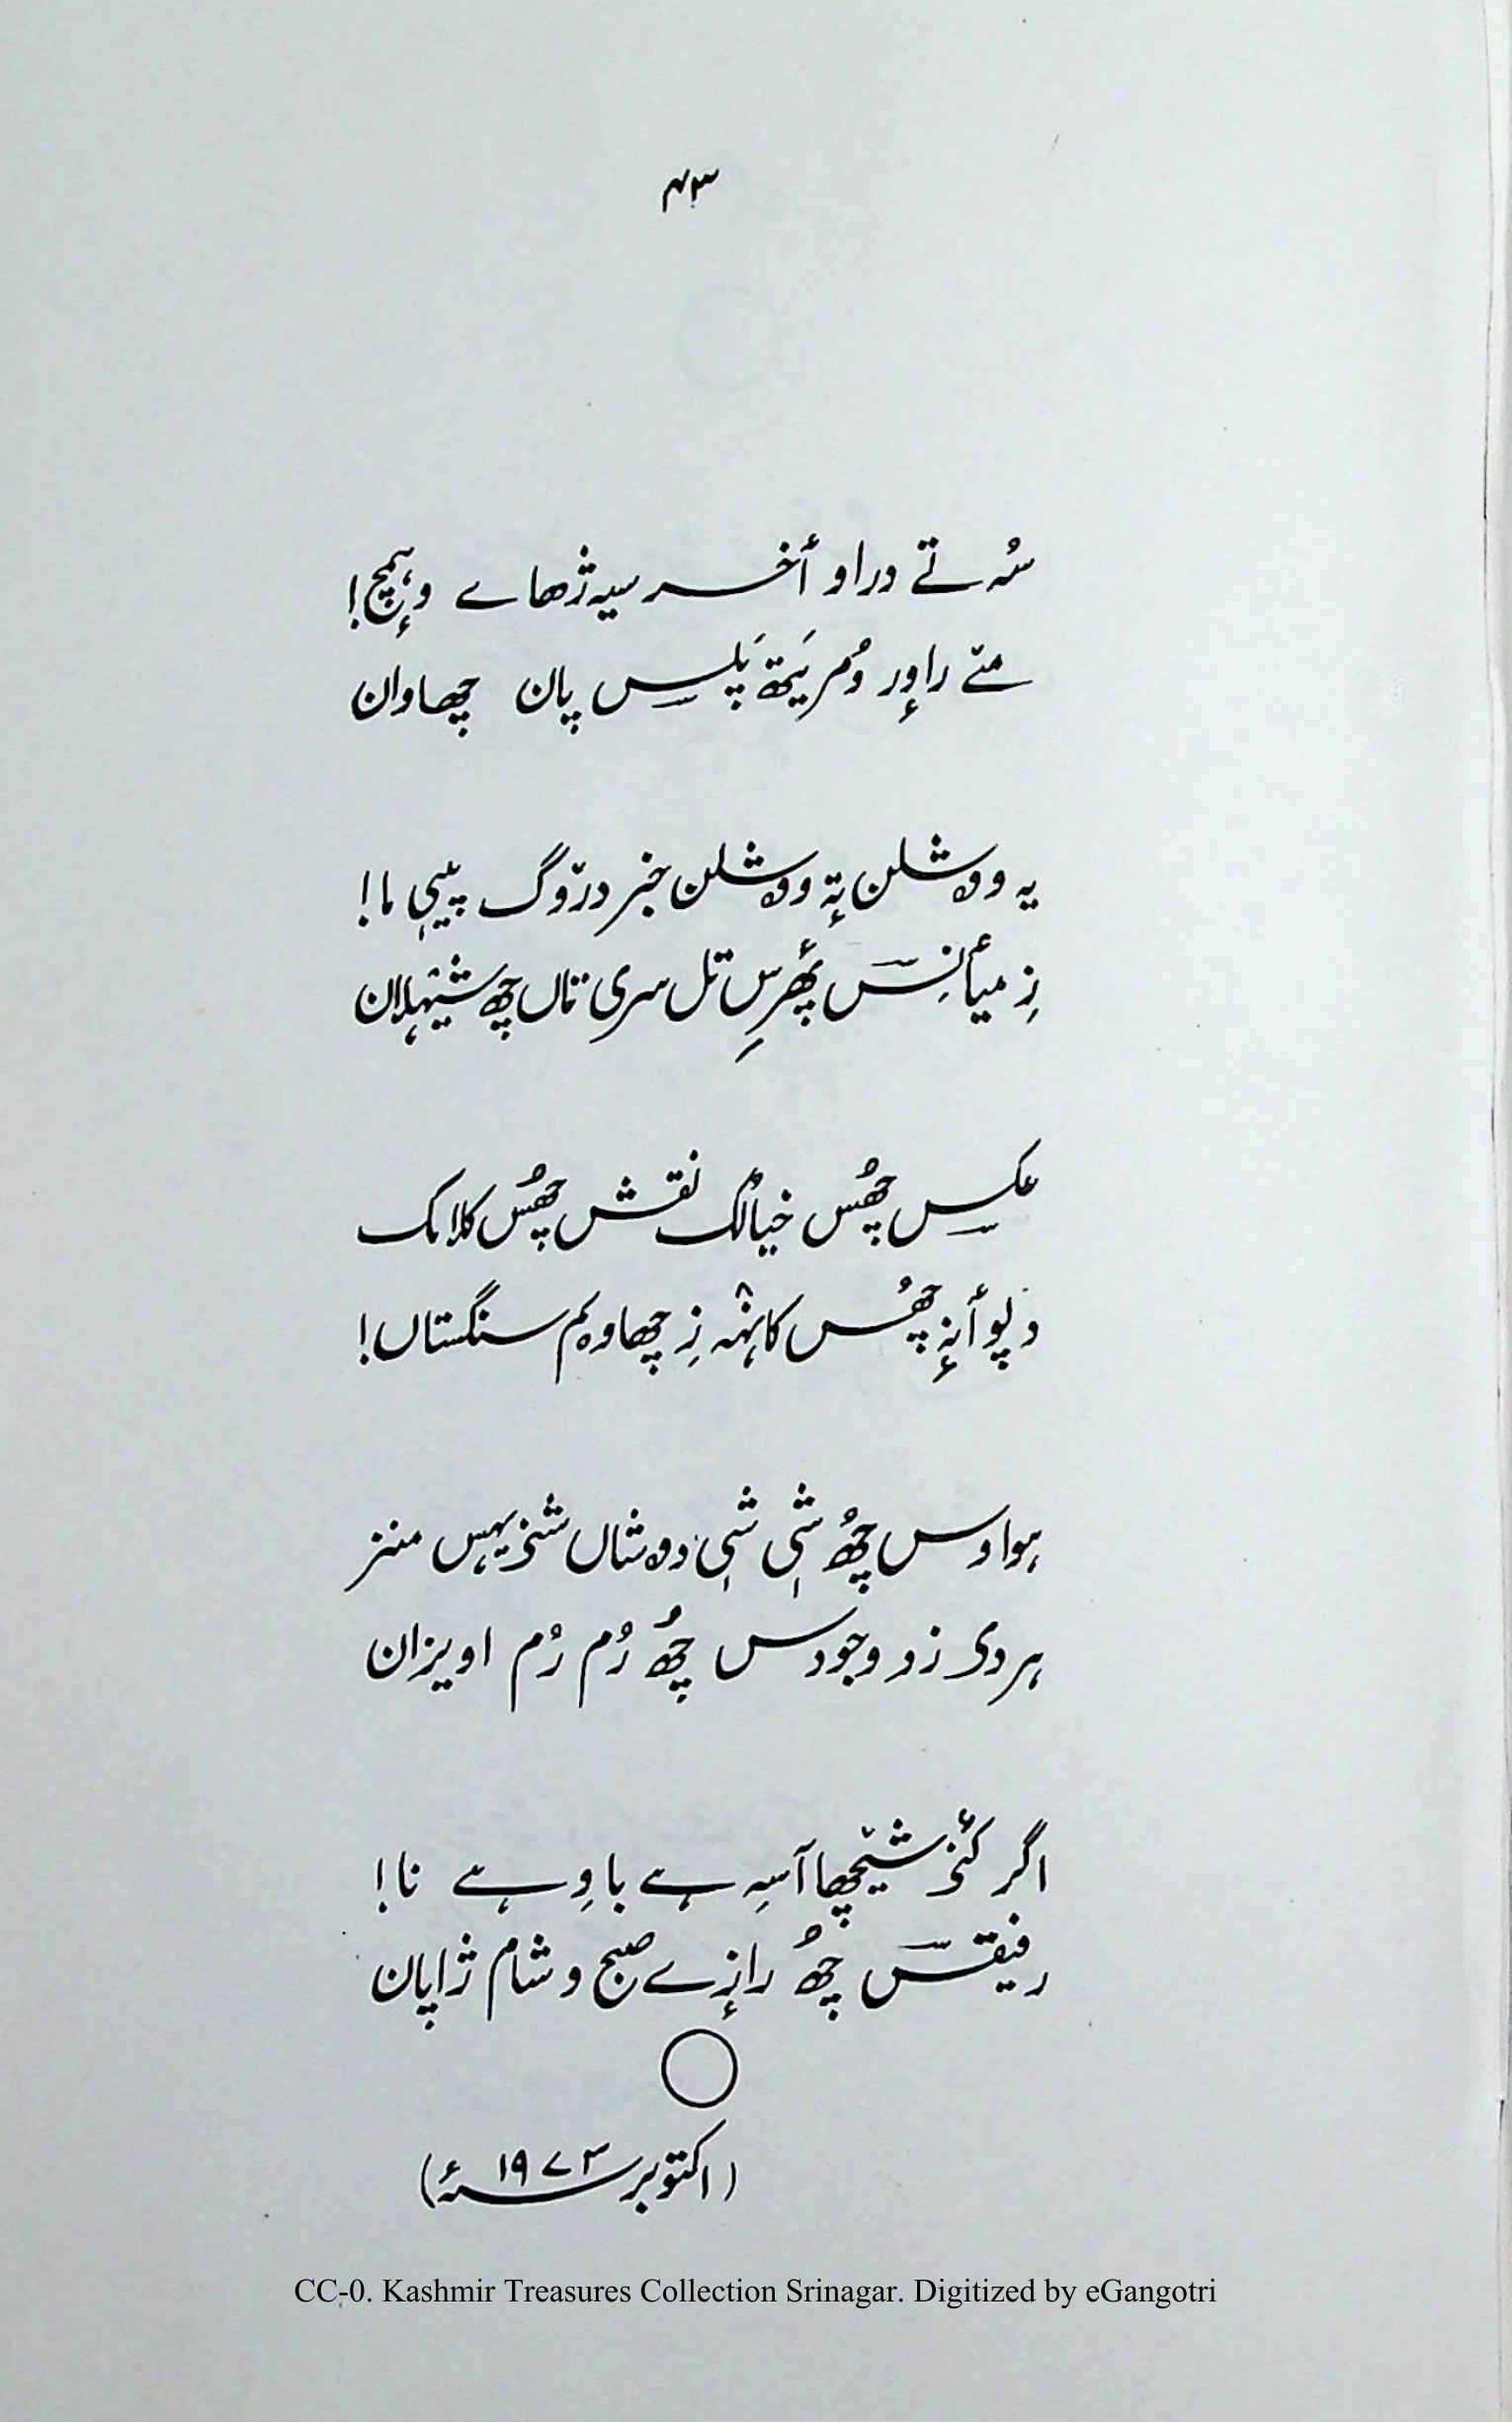 ۴۳
سُہ تے دراو أخر سیہ ژھاے وٕہمچ!
مےٚ راوٕر وُمر یَتھ پَلس پان چھاوان
یہ ووشلن تہٕ ووشلن خبر درٚوگ پییہٖ ما!
زِ میأنِس پھرٕس تل سری تاں چھ شیٚہلان
عکس چھُس خیالُک نقش چھُس کلامک
دِلو أنہٕ چھُس کانٛہہ زِ چھاوِم سنگستاں!
ہواوس چھُ شہٖ شہٖ دوشاں شنریہس منز
ہردی زرد وجودس چھُ رُم رُم اویزان
اگر کٔنز شیٚچھا آسہِ ہے باوِہے نا!
رفیقس چھُ رازٕے صبح و شام ژاپان
(اکتوبر ۱۹۷۳ء)
CC-0. Kashmir Treasures Collection Srinagar. Digitized by eGangotri